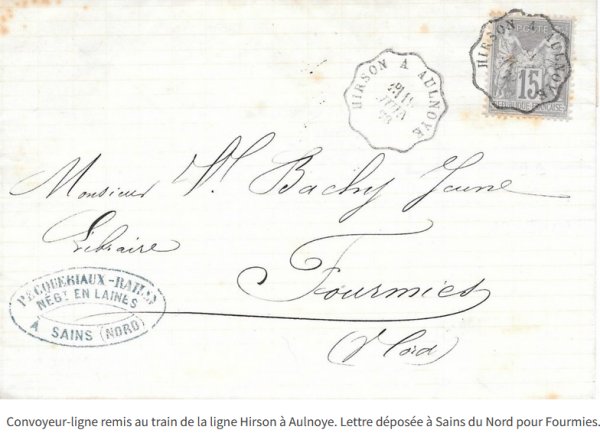 HIRSON À AULNOYE
HIRSON À AULNOYE
POSTE
15
REPUBLIQUE FRANÇAISE
Monsieur Vr Bachy Jeune
Libraire
Fourmies
(Nord)
NÉGT EN LAINES
À SAINS (NORD)
Convoyeur-ligne remis au train de la ligne Hirson à Aulnoye. Lettre déposée à Sains du Nord pour Fourmies.